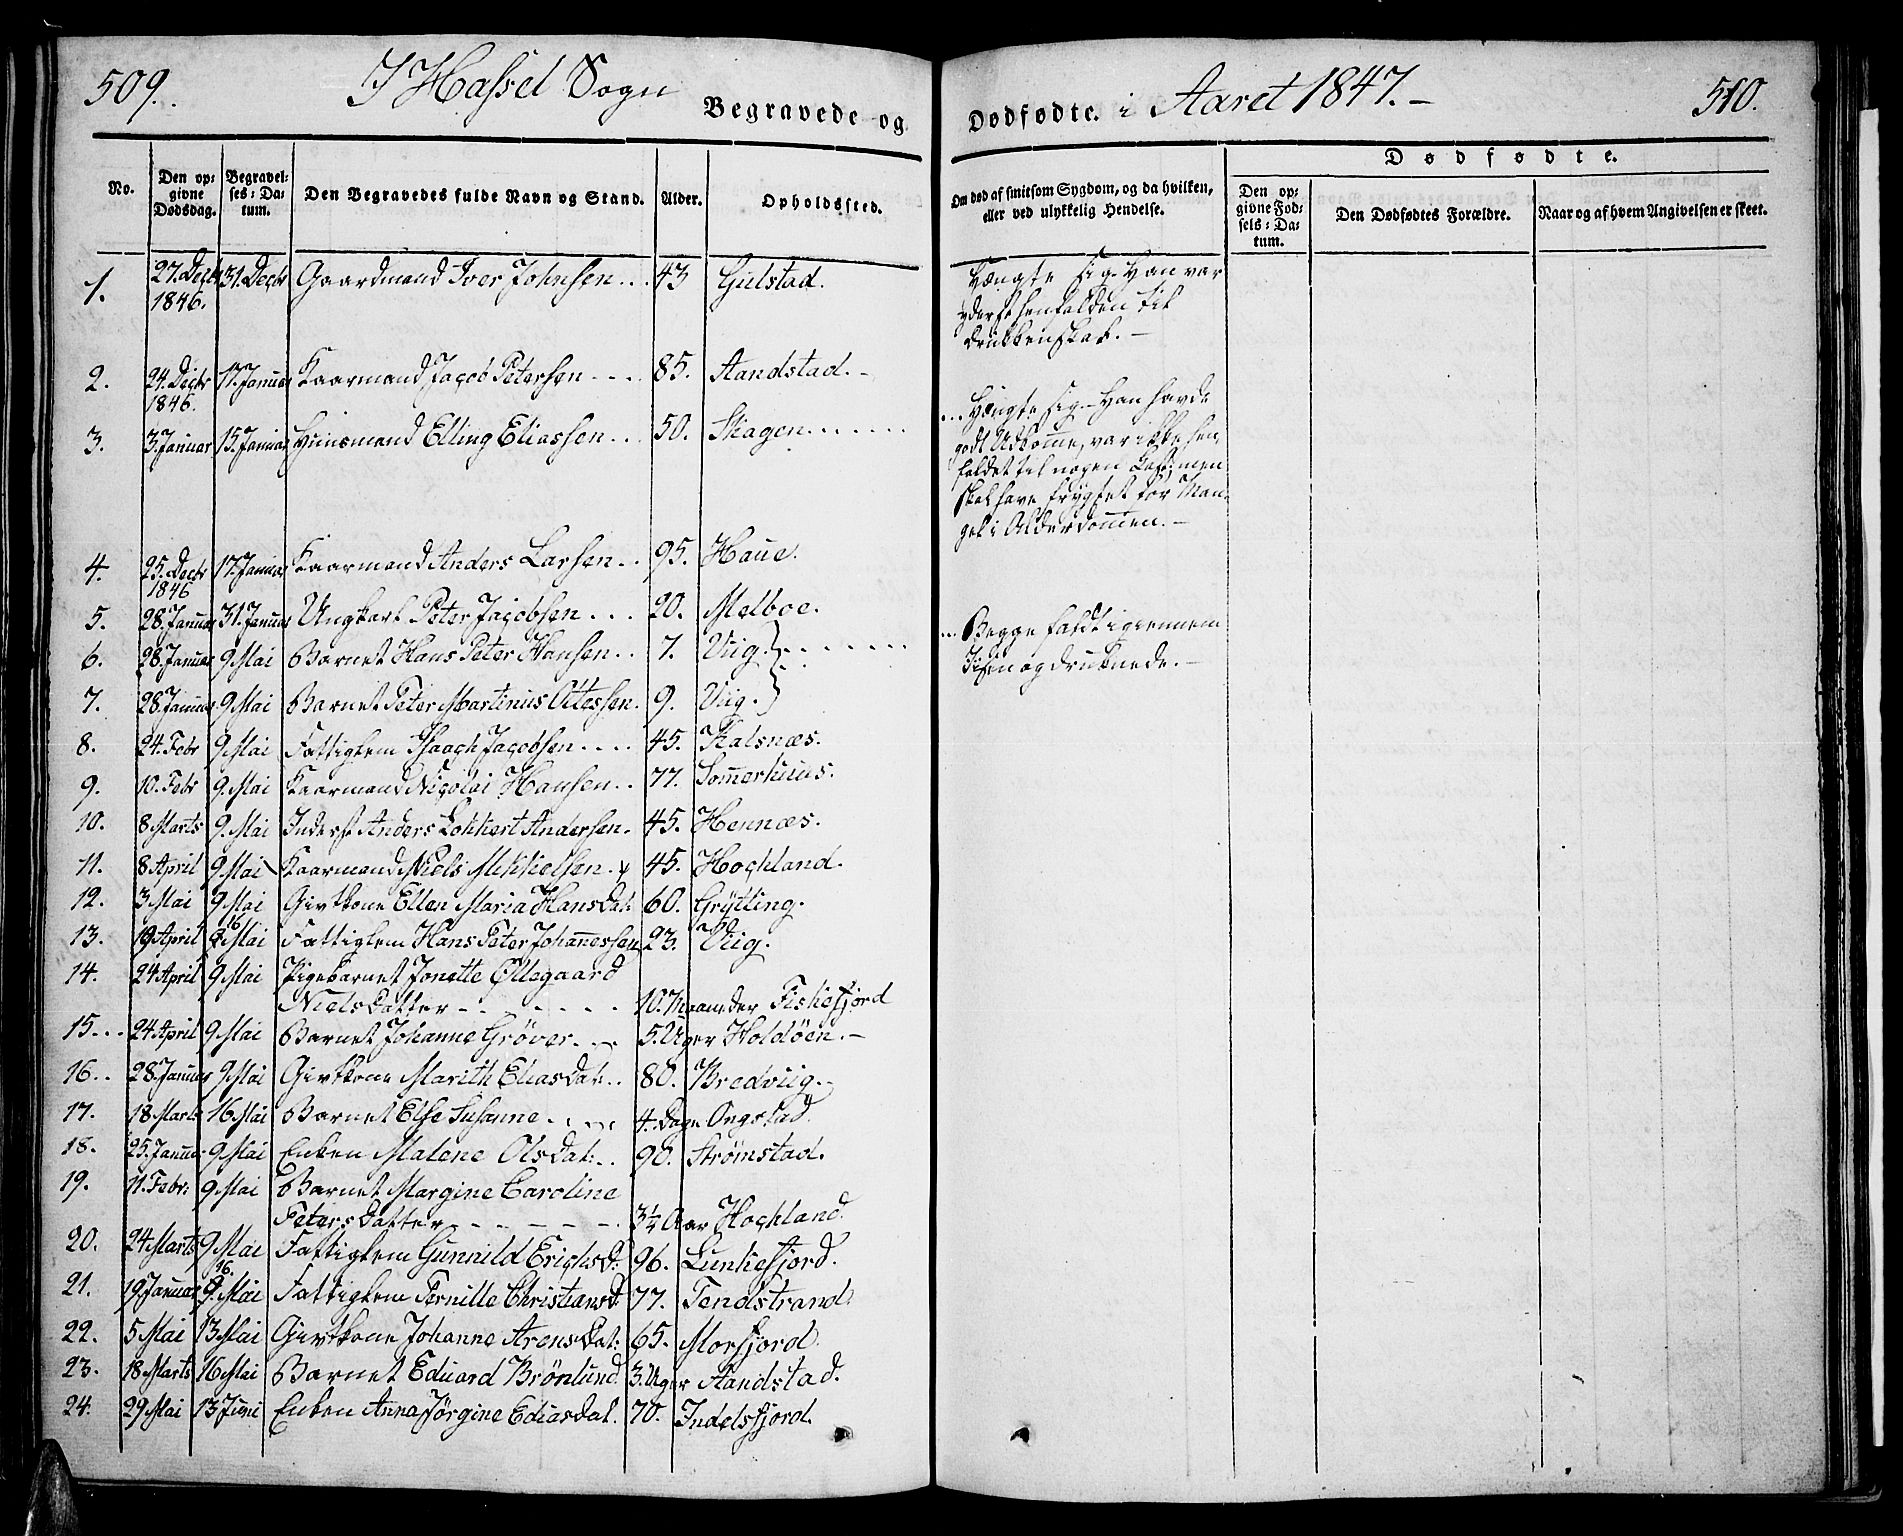 509.
I Hassel Sogn
Begravede og
Dødfødte. i Aaret 1847.-
510.
Dødfødte.
No.
Den opgivne Dødsdag.
Begravelses-Datum.
Den Begravedes fulde Navn og Stand.
Alder.
Opholdssted.
Om død af smitsom Sygdom, og da hvilken, eller ved ulykkelig Hendelse.
Den opgivne Fødsels-Datum.
Den Dødfødtes Forældre.
Naar og af hvem Angivelsen er skeet.
1. 27. Decbr 1846. 31. Decbr Gaardmand Iver Johnsen . . . 43 Gulstad. Hængte sig. Han var
yderst henfalden til
drukkenskab. -
2. 24. Decbr 1846. 17. Januar Kaarmand Jacob Petersen . . . 85. Sandstad. -
3. 3. Januar 15. Januar Huusmand Elling Eliassen . . . 50. Skagen . . . . . . . . . Hængte sig. - Han havde
godt Udkomme, var ikke hen-
faldet til nogen Last; men
skal have frygtet for Man-
gel i Alderdommen. -
4. 25. Decbr 1846 17. Januar Kaarmand Anders Larsen . . 95. Haue.
5. 28. Januar 31. Januar Ungkarl Peter Jacobsen . . . 20. Melboe.
6. 28. Januar 9. Mai Barnet Hans Peter Hansen . . 7. Viig. . . . . . . . . . . Begge faldt igiennem
Isen og druknede. -
7. 28. Januar 9 Mai Barnet Peter Martinus Ottessen. 9. Viig.
8. 24. Febr 9 Mai Fattiglem Isaach Jacobsen . . . . 45. Kalsnæs.
9. 10. Febr 9. Mai Kaarmand Nicolai Hansen . . 77. Sommerhuus.
10. 8 Marts 9. Mai Inderst Anders Lokkert Andersen. 45. Hennæs.
11. 8 April 9. Mai Kaarmand Niels Mikkelsen. 45. Hochland.
12. 3 Mai 9 Mai Givtkone Ellen Maria Hansdat: 60. Grytting.
13. 19 April 16 Mai Fattiglem Hans Peter Johannessen 23. Viig.
14. 24 April 9 Mai Pigebarnet Jonette Øllegaard
Nielsdatter - . - - - - - 10. Maaneder Fiskefjord
15 . . . 24 April 9 Mai Barnet Johanne Grøver . - - 5. Uger Holdøen. -
16 . . 28. Januar 9 Mai Givtkone Marith Eliasdat: . . 80. Bredviig. -
17. 18 Marts 16 Mai Barnet Else Susanne . - - - 4. Dage Ongstad.
18. 25. Januar 9 Mai Enken Malene Olsdat: . . 90. Strømstad.
19. 11. Febr: 9 Mai Barnet Margine Caroline
Petersdatter - - - - - - 3 1/4 Aar Hochland.
20. 24 Marts 9 Mai Fattiglem Gunnild Erichsd: 96. Lunkefjord.
21. 19 Januar 16. Mai Fattiglem Pernille Christiansd: 77. Tendstrand.
22. 5 Mai 13 Mai Givtkone Johanne Arensdat: 65. Morfjord.
23. 18 Marts 16 Mai Barnet Eduard Brönlund. 3. Uger Sandstad.
24. 29 Mai 13 Juni Enken Anna Jörgine Ediasdat. 70. Indelsfjord.